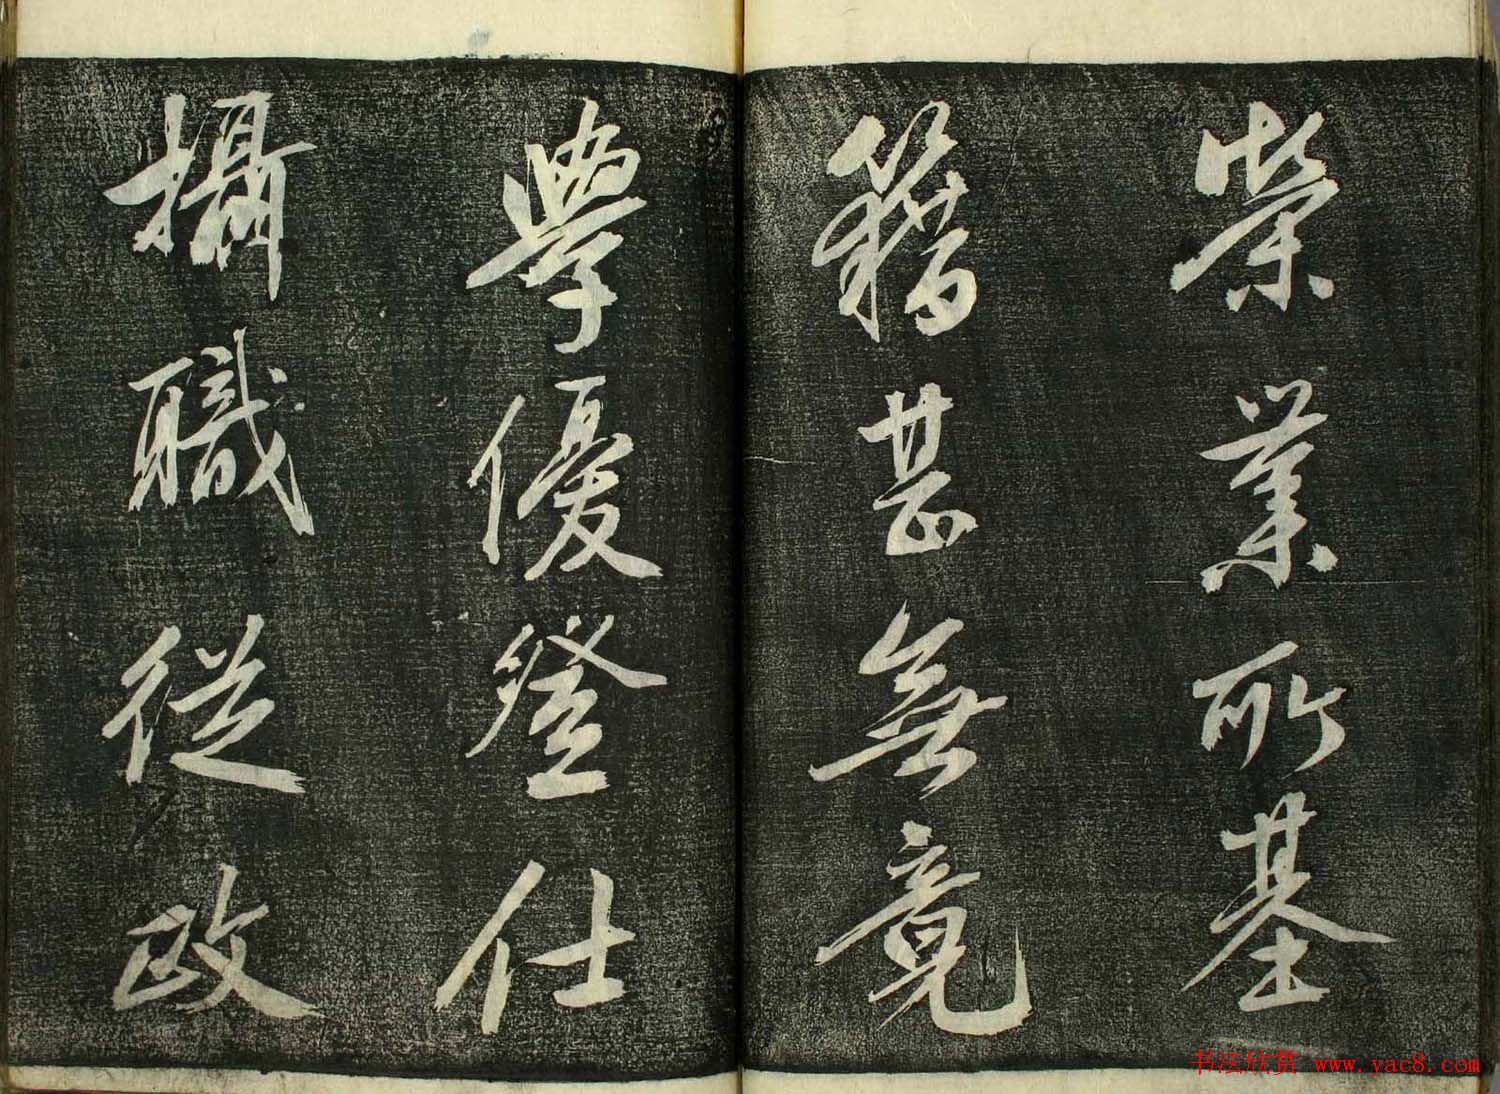 榮業所基
籍甚無竟
學優登仕
攝職從政
书法欣赏 www.yac8.com